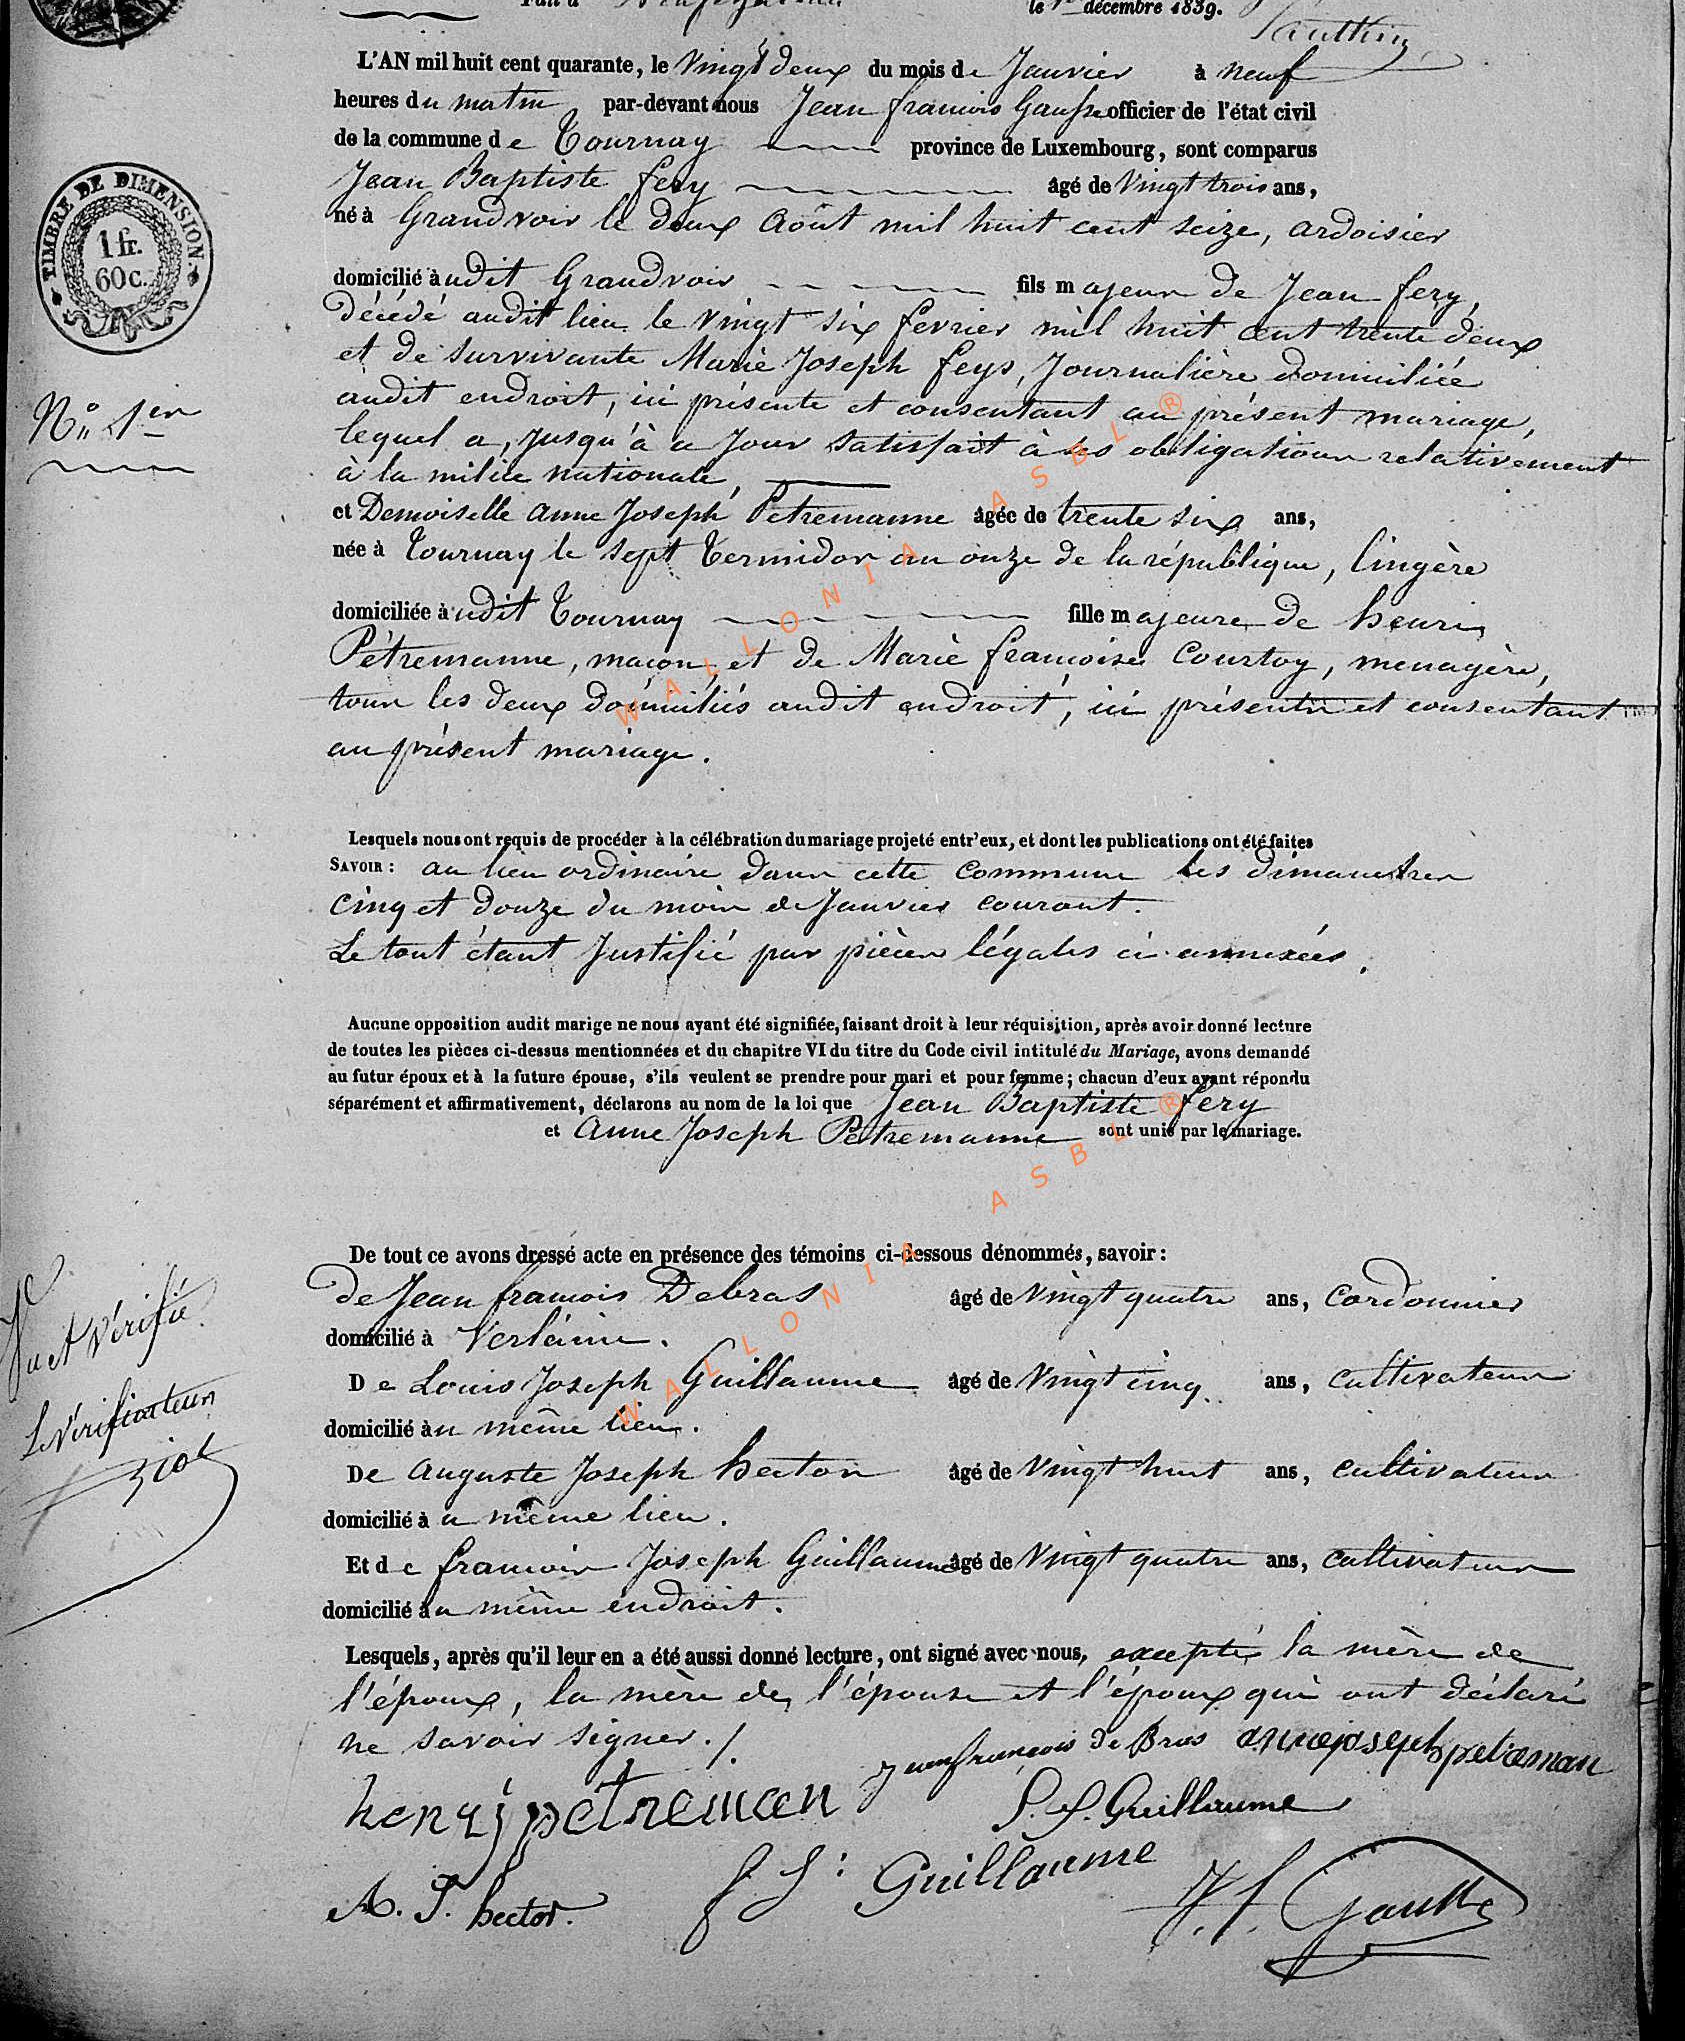 le 1er décembre 1839.
TIMBRE DE DIMENSION.
1 fr.
60 c.
L'AN mil huit cent quarante, le Vingt deux du mois de Janvier à neuf
heures du matin par-devant nous Jean francois Gausse officier de l'état civil
de la commune de Tournay province de Luxembourg, sont comparus
Jean Baptiste fery âgé de Vingt trois ans,
né à Grandvoir le deux Août mil huit cent seize, ardoisier
domicilié à udit Grandvoir fils majeur de Jean fery,
décédé audit lieu le vingt six fevrier mil huit cent trente deux
et de survivante Marie Joseph feys, Journalière domiciliée
audit endroit, ici présente et consentant au présent mariage,
lequel a, jusqu'à ce jour satisfait à ses obligations relativement
à la milice nationale,
N° 1er
et Demoiselle Anne Joseph Petremanne âgée de trente six ans,
née à Tournay le sept Termidor an onze de la république, lingère
domiciliée à udit Tournay fille majeure de henri
Pétremanne, maçon, et de Marie françoise Courtoy, menagère,
tous les deux domiciliés audit endroit, ici présents et consentant
au présent mariage.
Lesquels nous ont requis de procéder à la célébration du mariage projeté entr'eux, et dont les publications ont été faites
SAVOIR : au lieu ordinaire dans cette commune les dimanches
cinq et douze du mois de Janvier courant.
Le tout étant Justifié par pièces légales ci-annexées.
Aucune opposition audit marige ne nous ayant été signifiée, faisant droit à leur réquisition, après avoir donné lecture
de toutes les pièces ci-dessus mentionnées et du chapitre VI du titre du Code civil intitulé du Mariage, avons demandé
au futur époux et à la future épouse, s'ils veulent se prendre pour mari et pour femme ; chacun d'eux ayant répondu
séparément et affirmativement, déclarons au nom de la loi que Jean Baptiste fery
et Anne Joseph Petremanne sont unis par le mariage.
De tout ce avons dressé acte en présence des témoins ci-dessous dénommés, savoir :
de Jean francois Debras âgé de Vingt quatre ans, Cordonnier
domicilié à Verlaine.
De Louis Joseph Guillaume âgé de Vingt cinq ans, cultivateur
domicilié au même lieu.
De Auguste Joseph hector âgé de Vingt huit ans, cultivateur
domicilié à u même lieu.
Et de francois Joseph Guillaume âgé de Vingt quatre ans, cultivateur
domicilié au même endroit.
Vu et Vérifié
Le Vérificateur
Lesquels, après qu'il leur en a été aussi donné lecture, ont signé avec nous, excepté la mère de
l'époux, la mère de l'épouse et l'époux qui ont déclaré
ne savoir signer./.
jeanfrançois de Bras annejoseph petreman
henrij petreman L. J. Guillaume
A. J. hector. f J : Guillaume J. f. Gausse
WALLONIA ASBL ®
WALLONIA ASBL ®